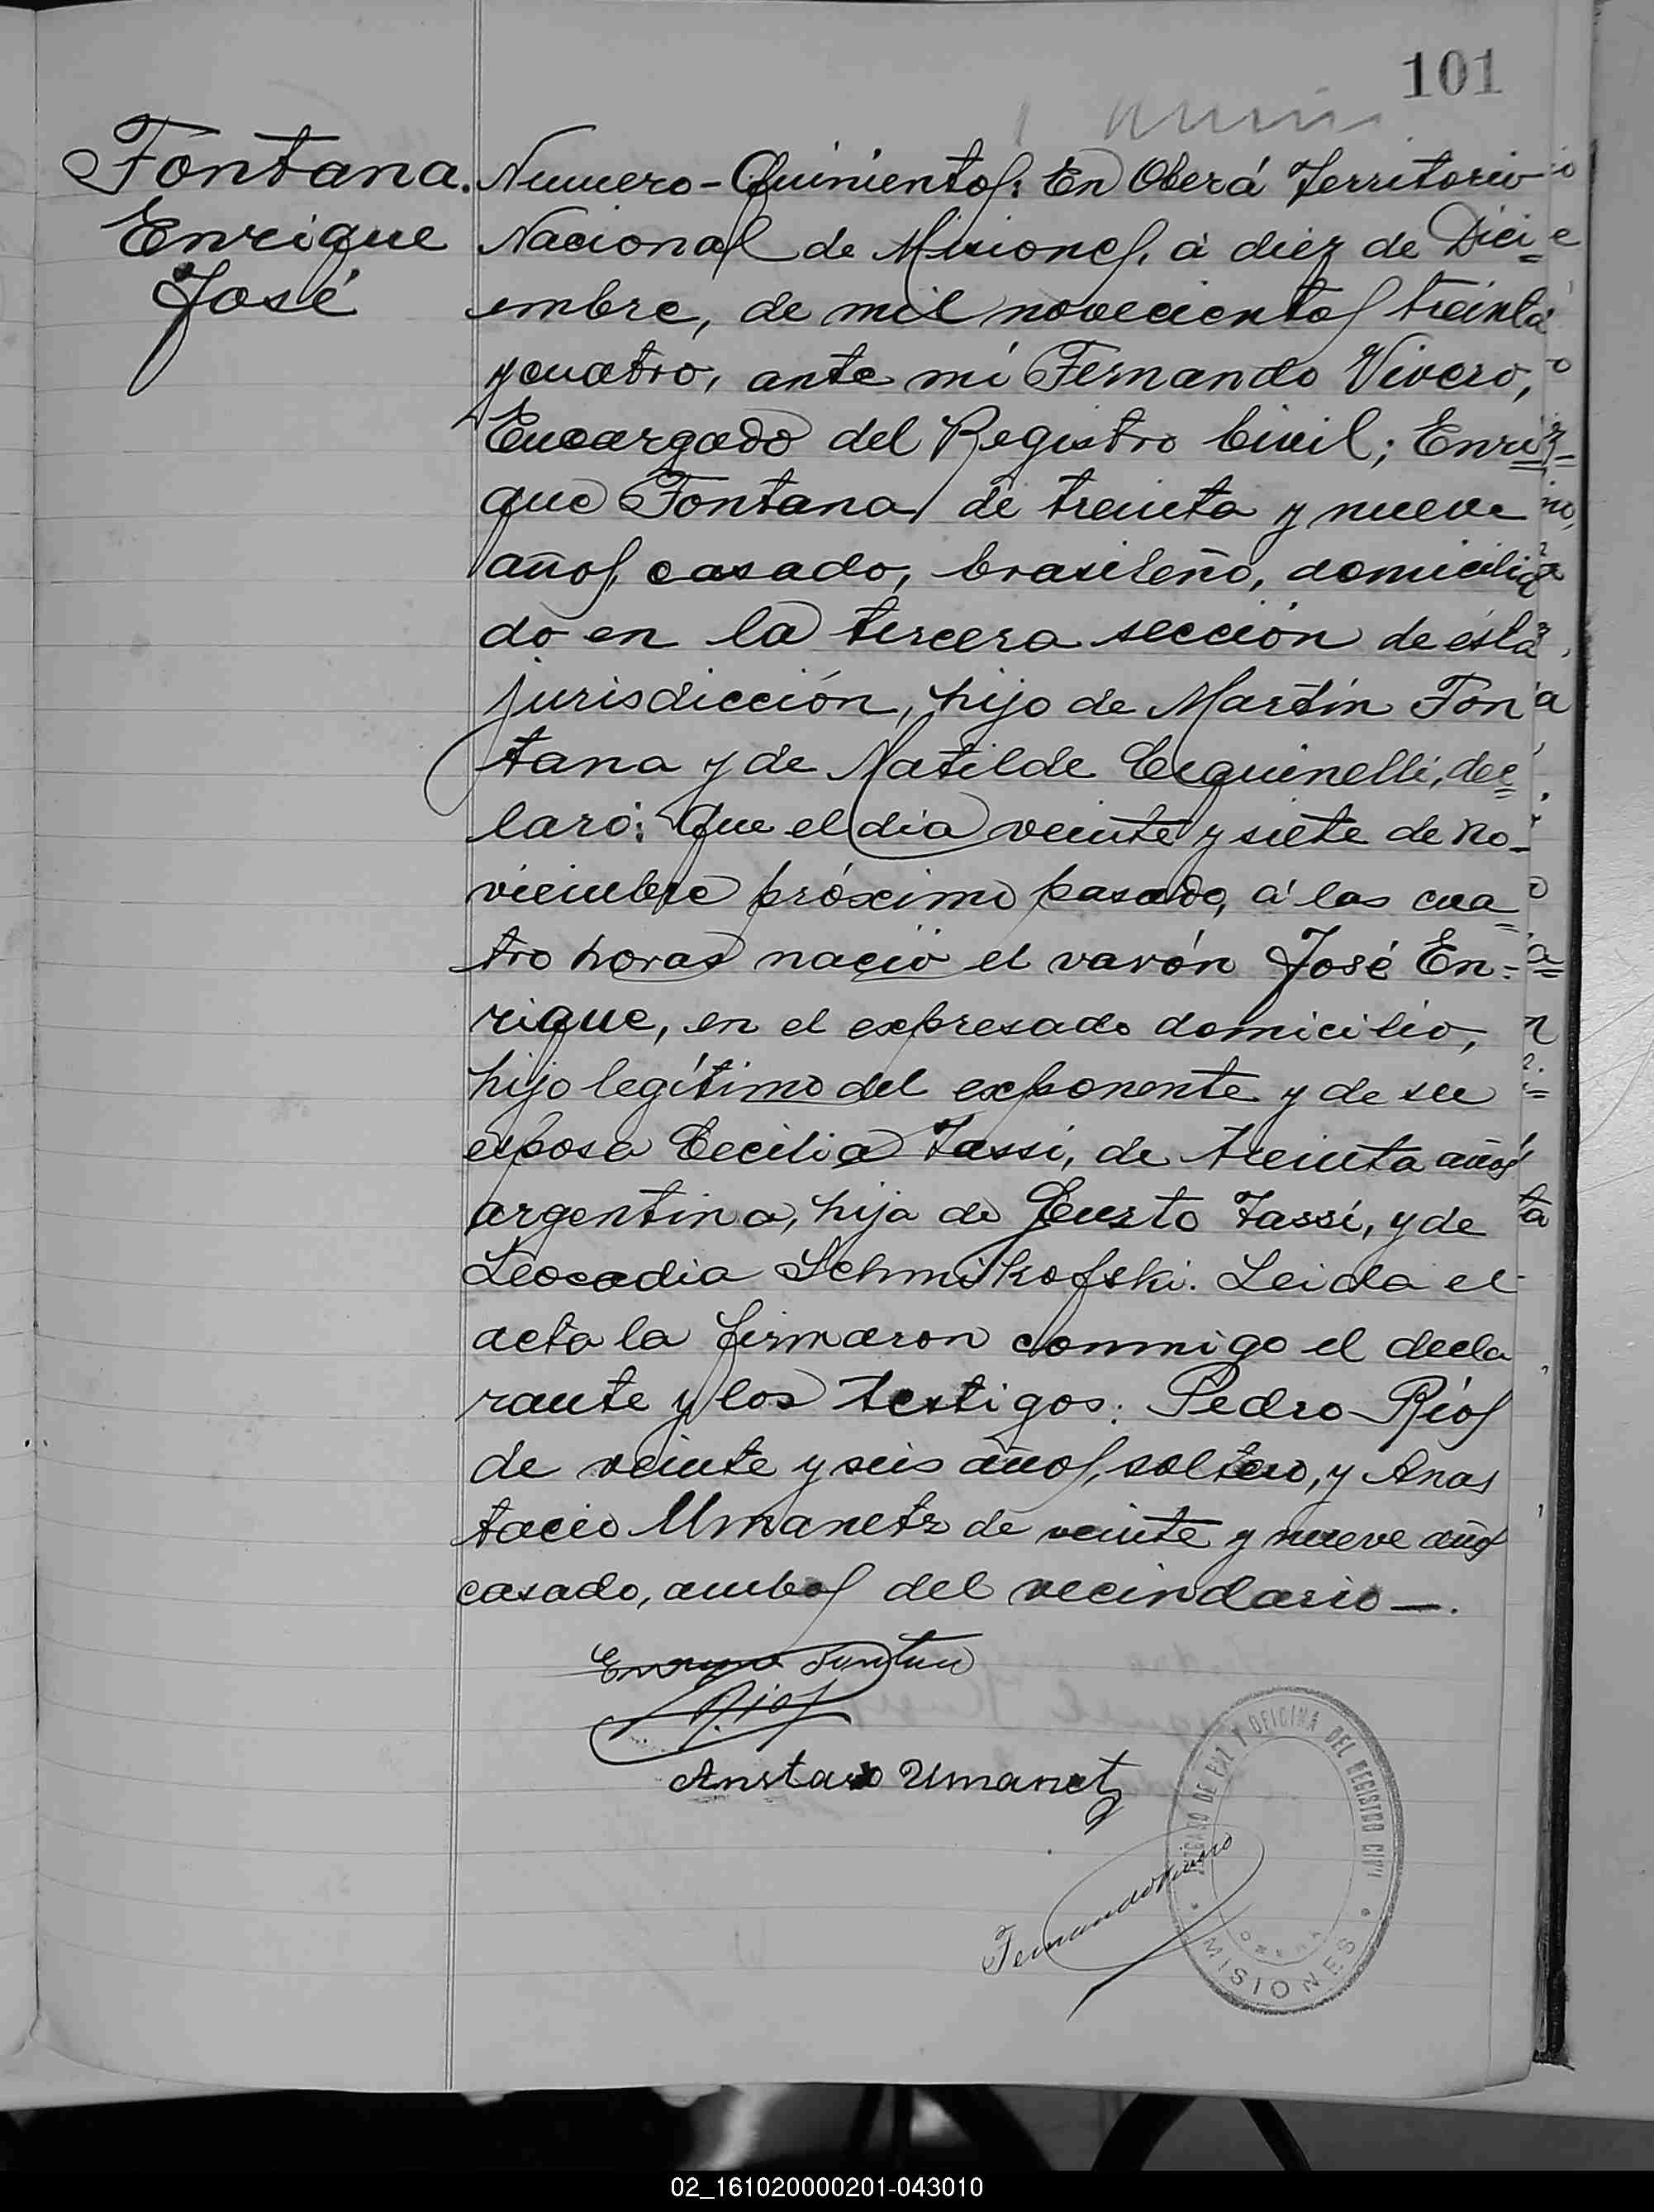 101
Fontana.
Enrique
José
Numero-Quinientos: En Oberá Territorio
Nacional de Misiones, á diez de Dici=
embre, de mil novecientos treinta
y cuatro, ante mi Fernando Vivero,
Encargado del Registro Civil; Enri=
que Fontana de treinta y nueve
años, casado, brasileño, domicilia
do en la tercera sección de ésta
jurisdicción, hijo de Martín Fon
tana y de Matilde Cequinelli, dec=
laró: Que el dia veinte y siete de No-
viembre próximo pasado, á las cua=
tro horas nació el varón José En=
rique, en el expresado domicilio,
hijo legítimo del exponente y de su
esposa Cecilia Tassi, de treinta años
argentina, hija de Justo Tassi, y de
Leocadia Schmikofski. Leida el
acta la firmaron conmigo el decla
rante y los testigos: Pedro Ríos
de veinte y seis años, soltero, y Anas
tacio Umanetz de veinte y nueve años
casado, ambos del vecindario —.
Enrique Fontana
P. Rios
Anstasio Umanetz
Fernando Vivero
JUZGADO DE PAZ Y OFICINA DEL REGISTRO CIVIL
OBERA
MISIONES
02_161020000201-043010